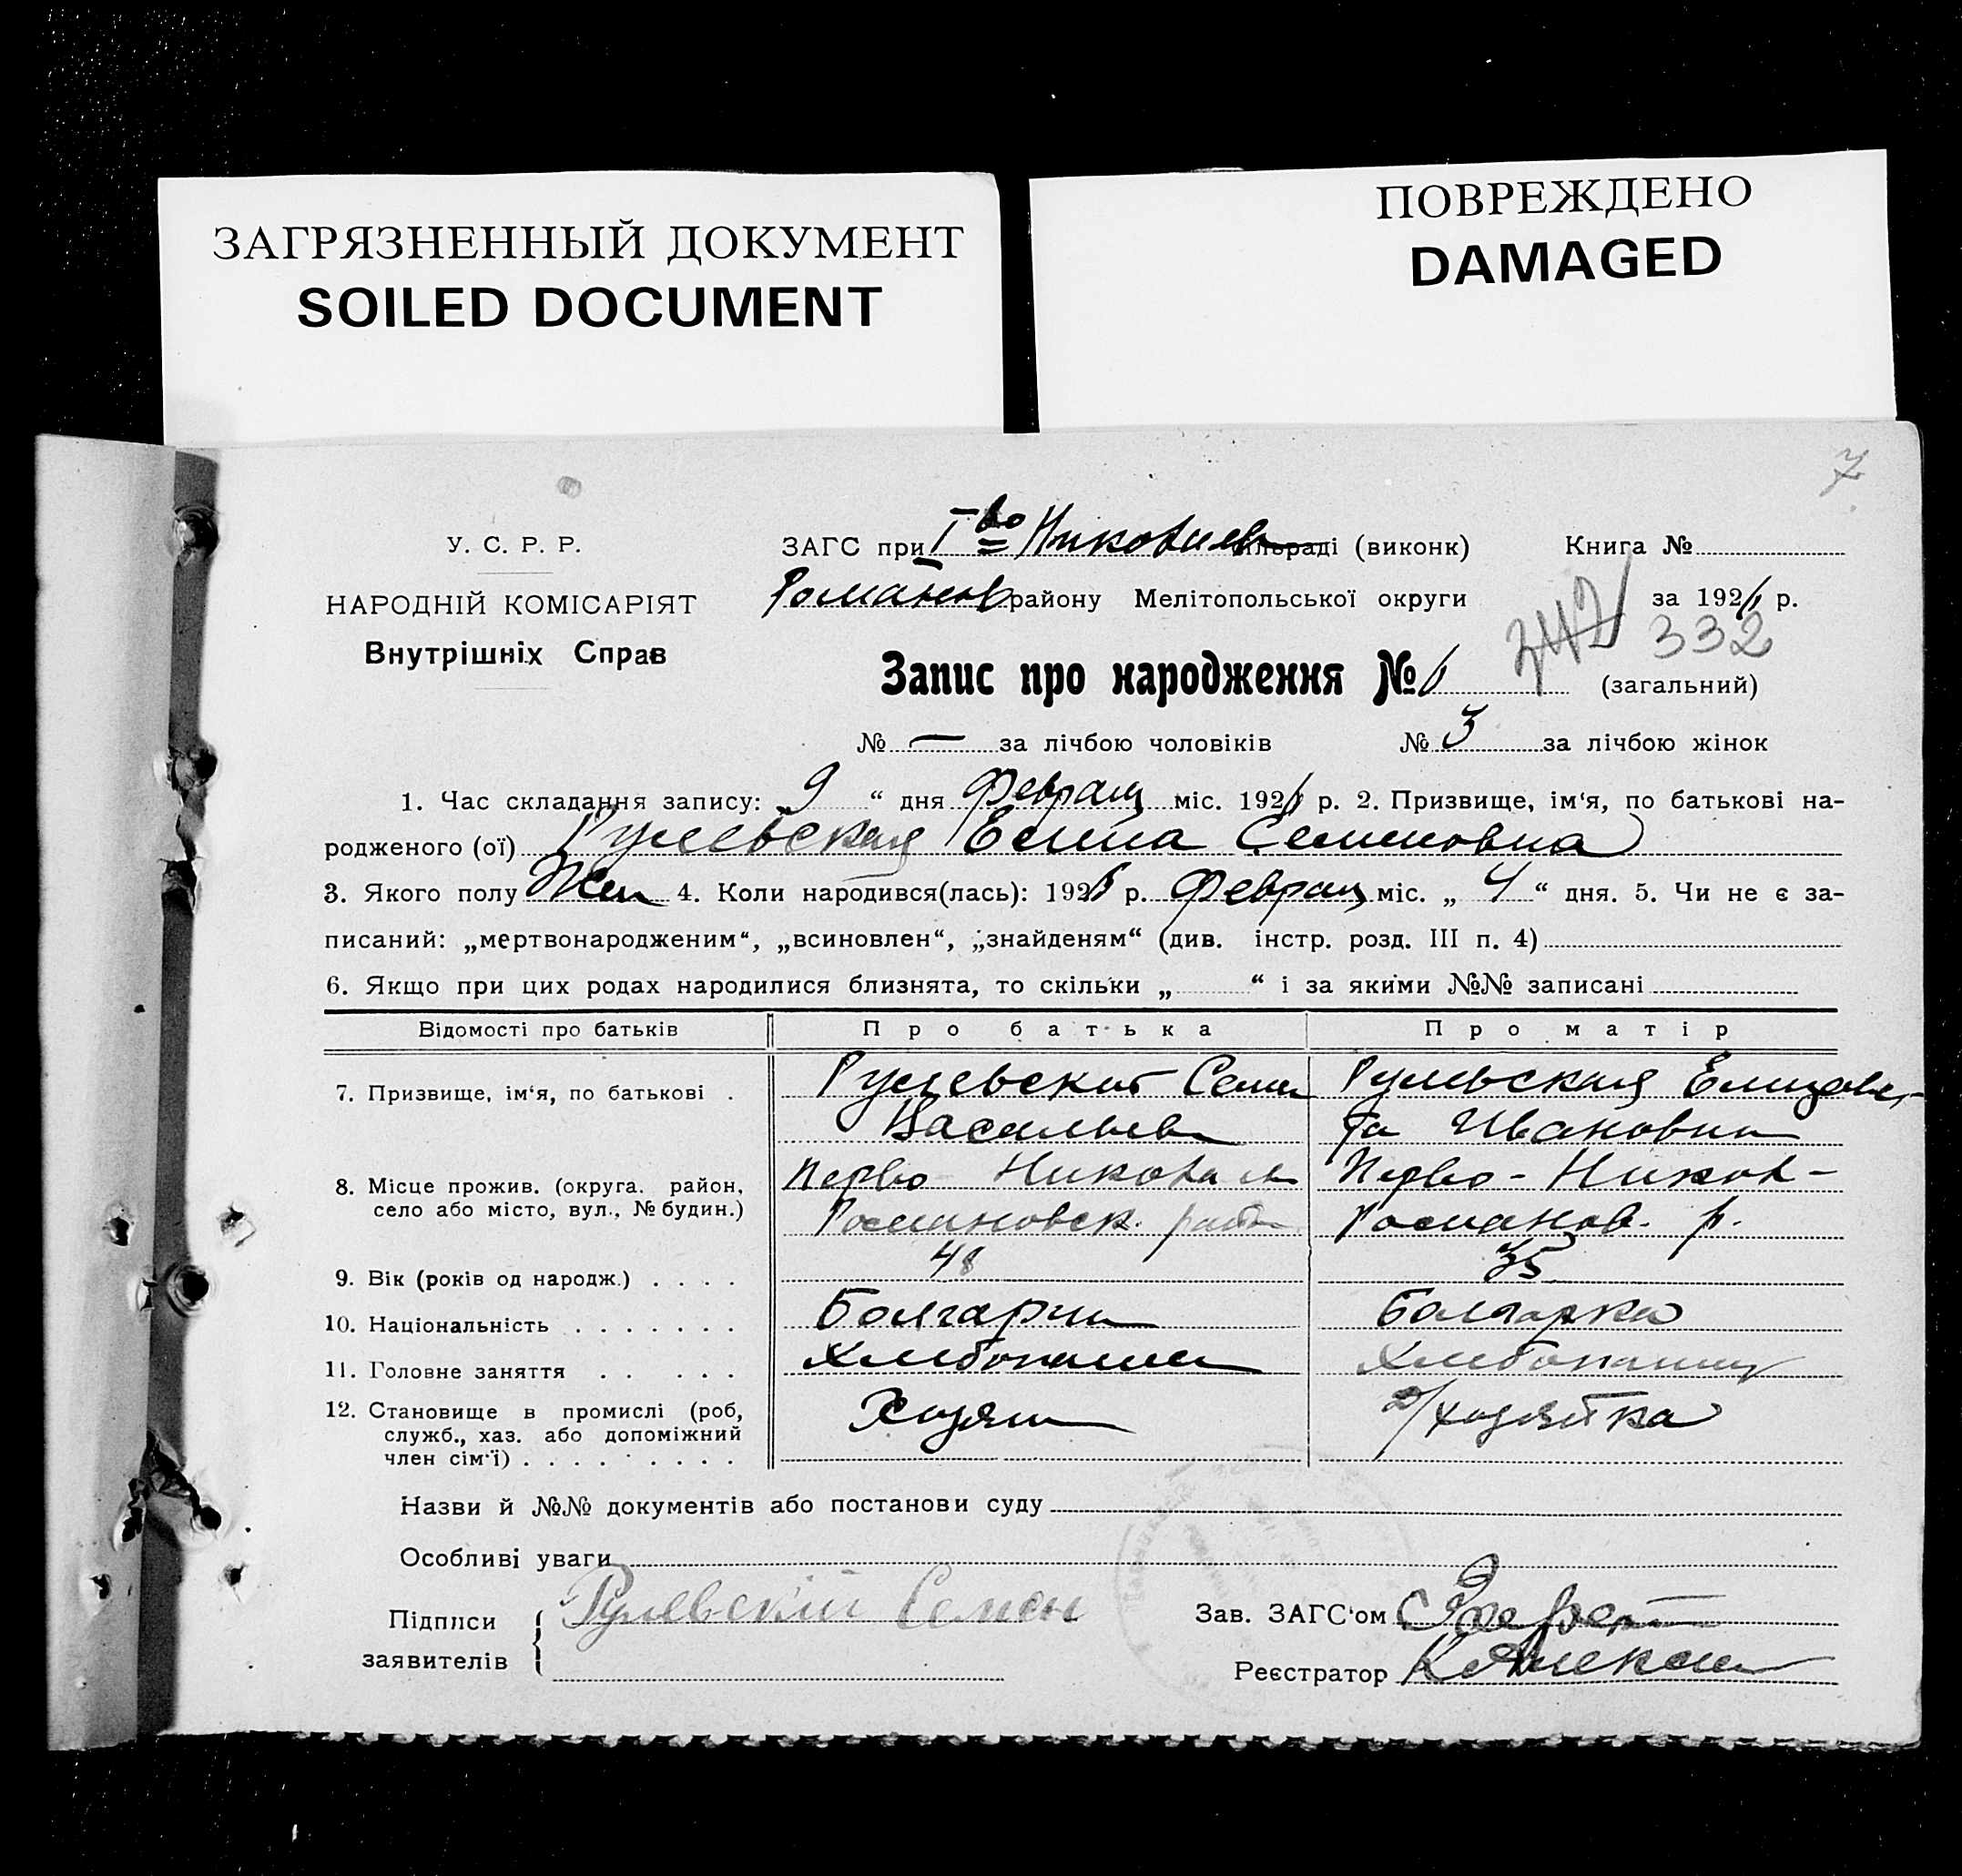 ЗАГРЯЗНЕННЫЙ ДОКУМЕНТ
SOILED DOCUMENT
ПОВРЕЖДЕНО
DAMAGED
7
У. С. Р. Р.
НАРОДНІЙ КОМІСАРІЯТ
Внутрішніх Справ
ЗАГС при Iво Николаев сільраді (виконк) Книга №
Романов району Мелітопольської округи за 1926 р.
342 332
Запис про народження № 6 (загальний)
№ — за лічбою чоловіків № 3 за лічбою жінок
1. Час складання запису: „9“ дня Февраля міс. 1926 р. 2. Призвище, ім‘я, по батькові на-
родженого (ої) Семеновна
3. Якого полу Жен 4. Коли народився(лась): 1926 р. Февраля міс. „4“ дня. 5. Чи не є за-
писаний: „мертвонародженим“, „всиновлен“, „знайденям“ (див. інстр. розд. III п. 4)
6. Якщо при цих родах народилися близнята, то скільки „ “ і за якими №№ записані
Відомості про батьків Про батька Про матір
7. Призвище, ім‘я, по батькові . Рулевский Семен Рулевская Елизаве-
Васильев та Ивановна
8. Місце прожив. (округа. район, село або місто, вул., № будин.) Перво Николаев Перво-Никол-
Романовск. район Романов. р.
9. Вік (років од народж.) . . . . 48 35
10. Національність . . . . . . . Болгарин Болгарка
11. Головне заняття . . . . . Хлебопашец
12. Становище в промислі (роб, служб., хаз. або допоміжний член сім‘ї) . . . . . . . . . Хозяин д/хозяйка
Назви й №№ документів або постанови суду
Особливі уваги
Підписи заявителів Рулевский Семен
Зав. ЗАГС‘ом
Реєстратор